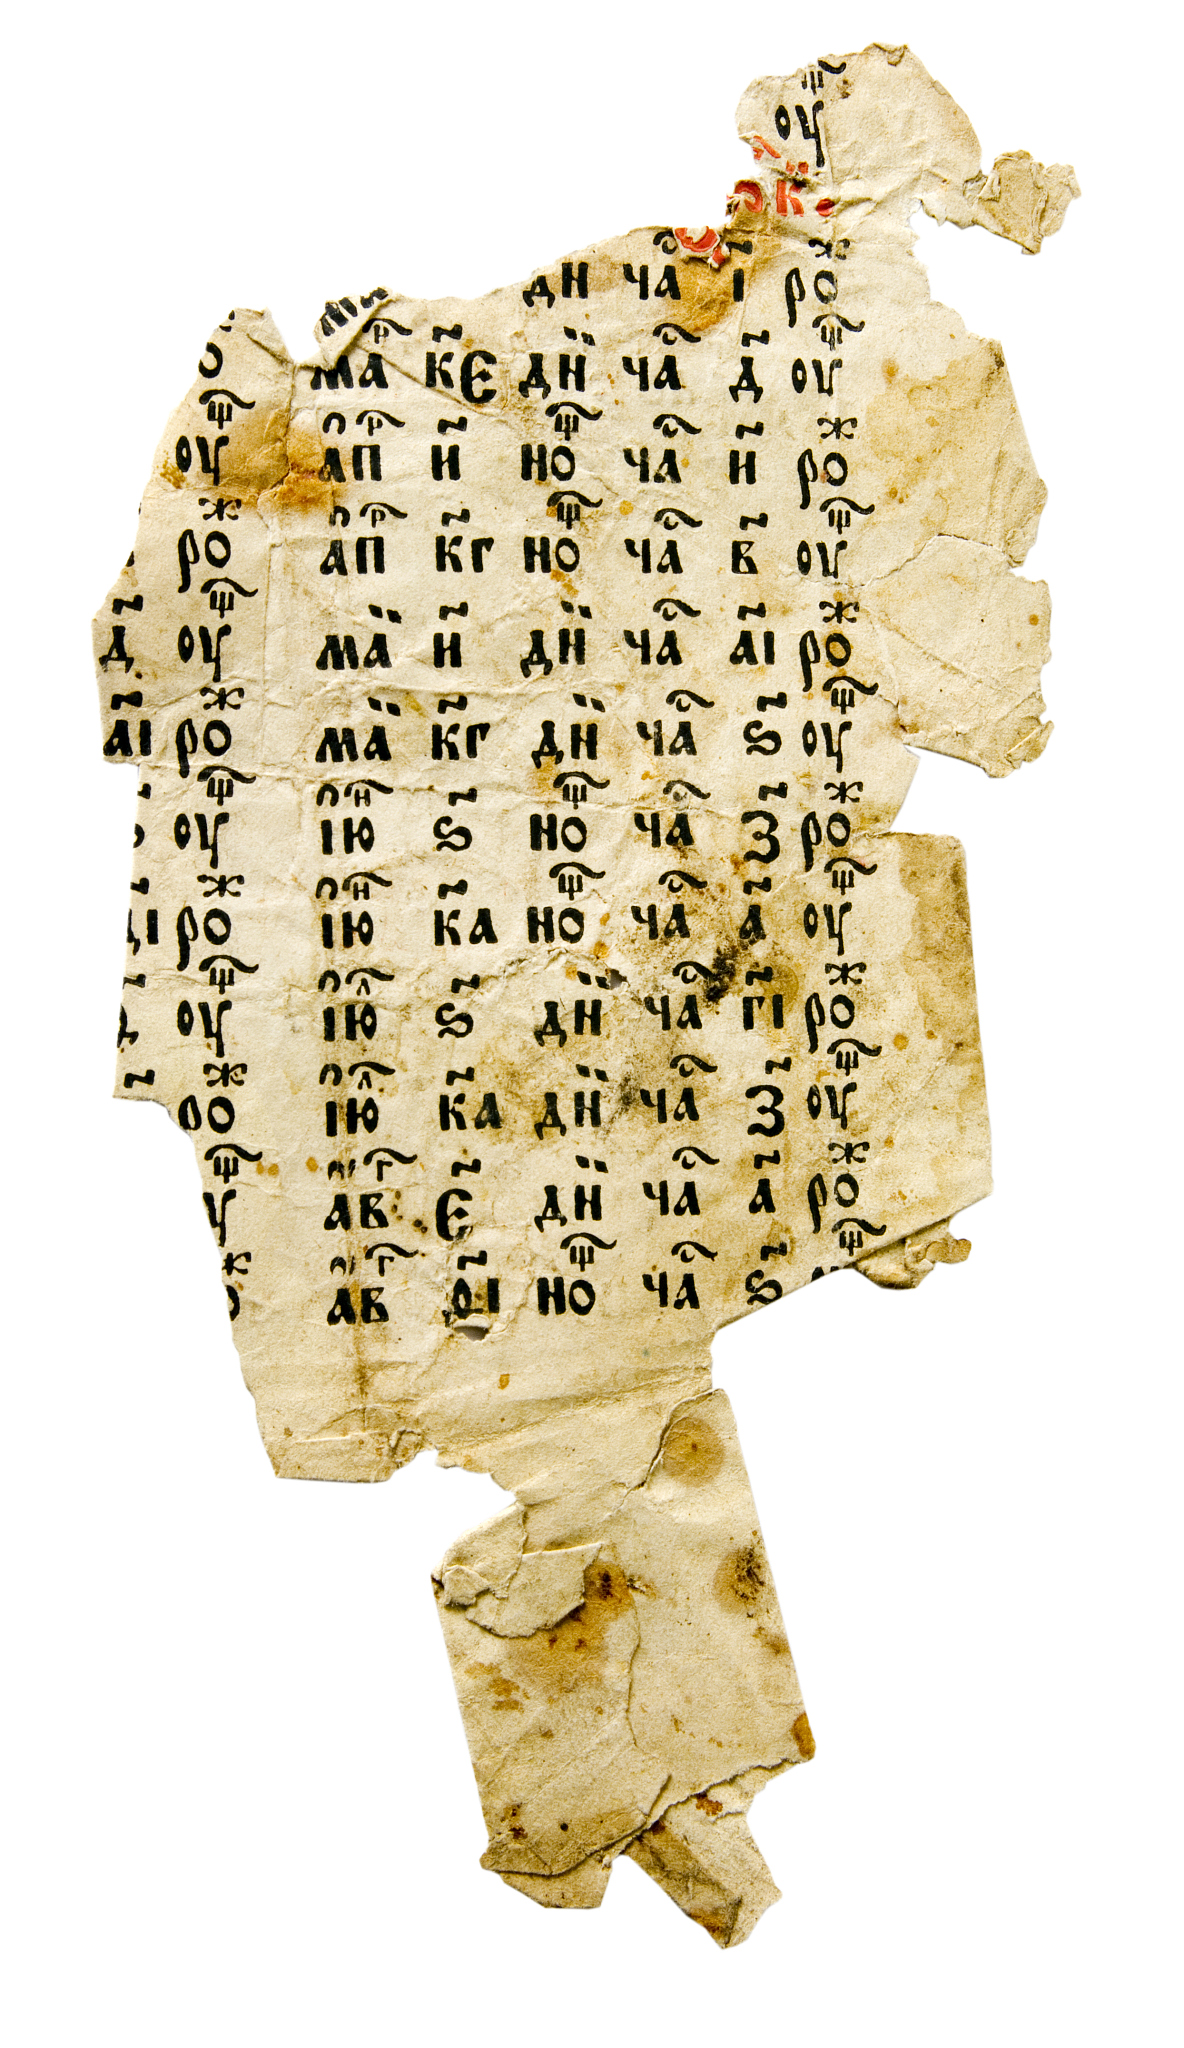 оу
к҃
дн ча і҃ ро
ма к҃є дн ча д҃ оу
оу ап и҃ но ча и҃ ро
ро ап к҃г но ча в҃ оу
д҃ оу ма и҃ дн ча а҃і ро
а҃і ро ма к҃г дн ча ѕ҃ оу
оу ію ѕ҃ но ча з҃ ро
ро ію к҃а но ча а҃ оу
оу ію ѕ҃ дн ча г҃і ро
ро ію к҃а дн ча з҃ оу
ав є҃ дн ча а҃ ро
ав д҃і но ча ѕ҃